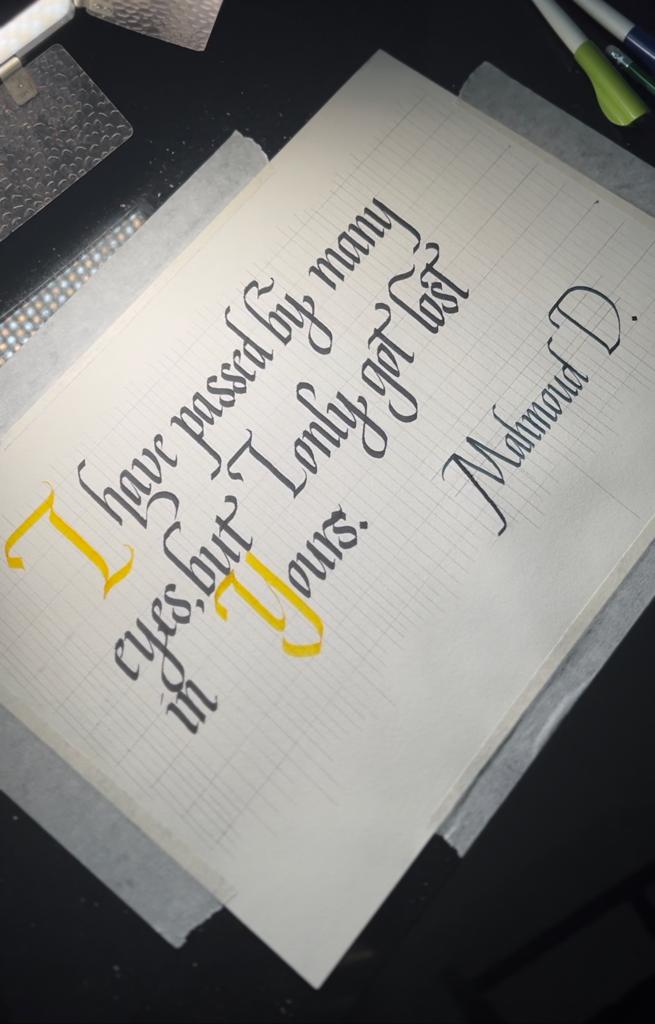 I have passed by many
eyes, but I only got lost
in Yours.
Mahmoud D.